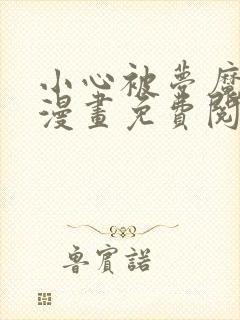 小心被夢魔
漫畫免費閱
魯賓諾